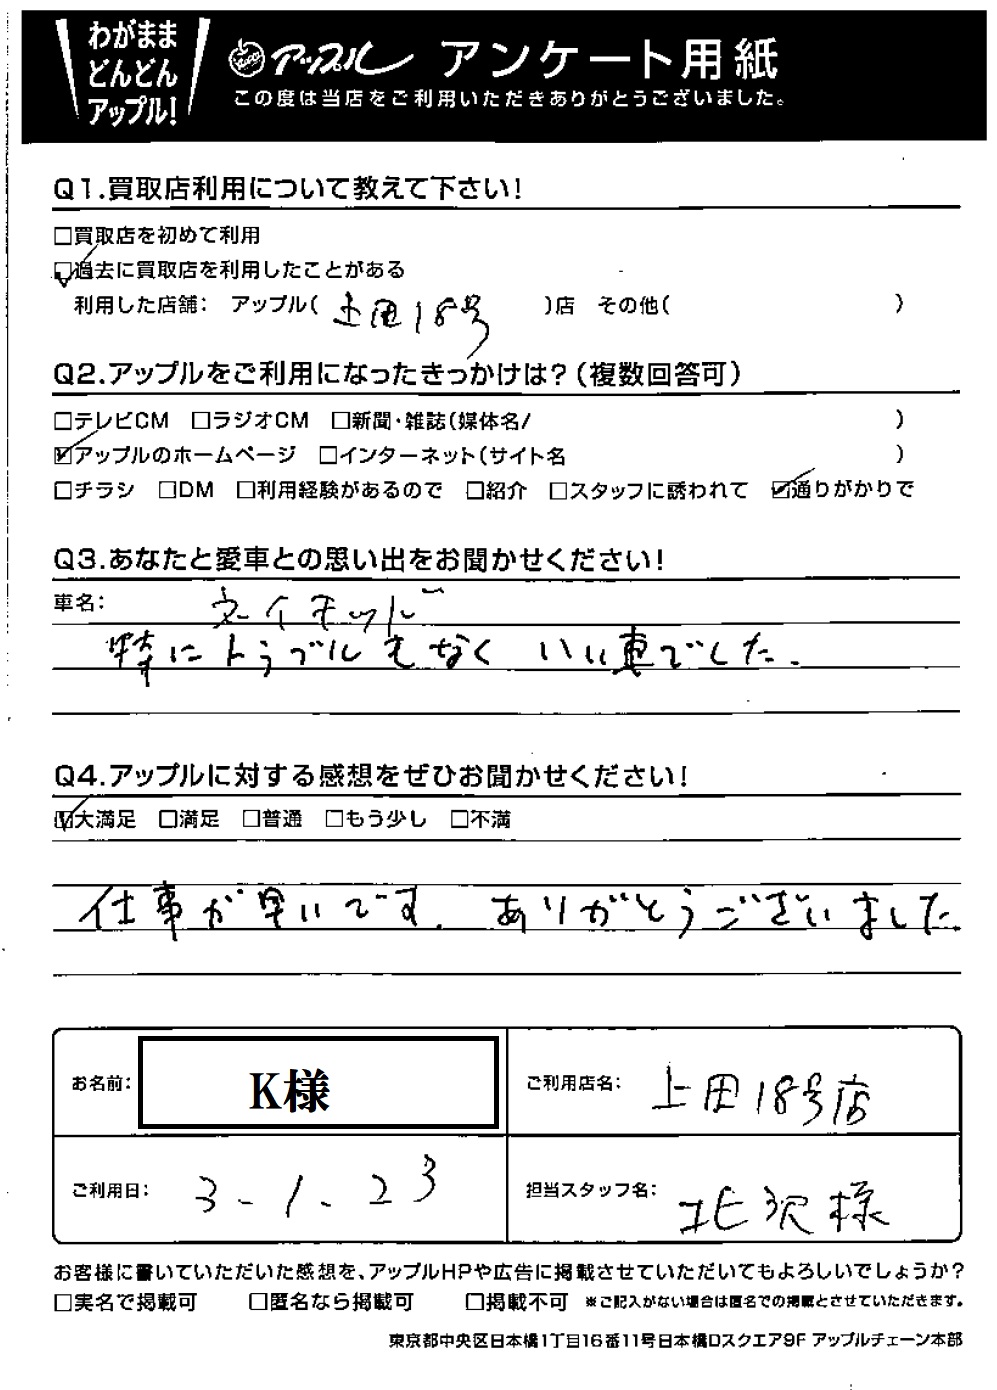 わがまま
どんどん
アップル!
アップル アンケート用紙
この度は当店をご利用いただきありがとうございました。
Q1.買取店利用について教えて下さい!
□買取店を初めて利用
☑過去に買取店を利用したことがある
利用した店舗: アップル(上田18号)店 その他( )
Q2.アップルをご利用になったきっかけは?(複数回答可)
□テレビCM □ラジオCM □新聞・雑誌(媒体名/ )
☑アップルのホームページ □インターネット(サイト名 )
□チラシ □DM □利用経験があるので □紹介 □スタッフに誘われて ☑通りがかりで
Q3.あなたと愛車との思い出をお聞かせください!
車名: ネイキッド
特にトラブルもなく いい車でした.
Q4.アップルに対する感想をぜひお聞かせください!
☑大満足 □満足 □普通 □もう少し □不満
仕事が早いです. ありがとうございました.
お名前: K様 ご利用店名: 上田18号店
ご利用日: 3.1.23 担当スタッフ名: 北沢様
お客様に書いていただいた感想を、アップルHPや広告に掲載させていただいてもよろしいでしょうか?
□実名で掲載可 □匿名なら掲載可 □掲載不可 ※ご記入がない場合は匿名での掲載とさせていただきます。
東京都中央区日本橋1丁目16番11号日本橋Dスクエア9F アップルチェーン本部